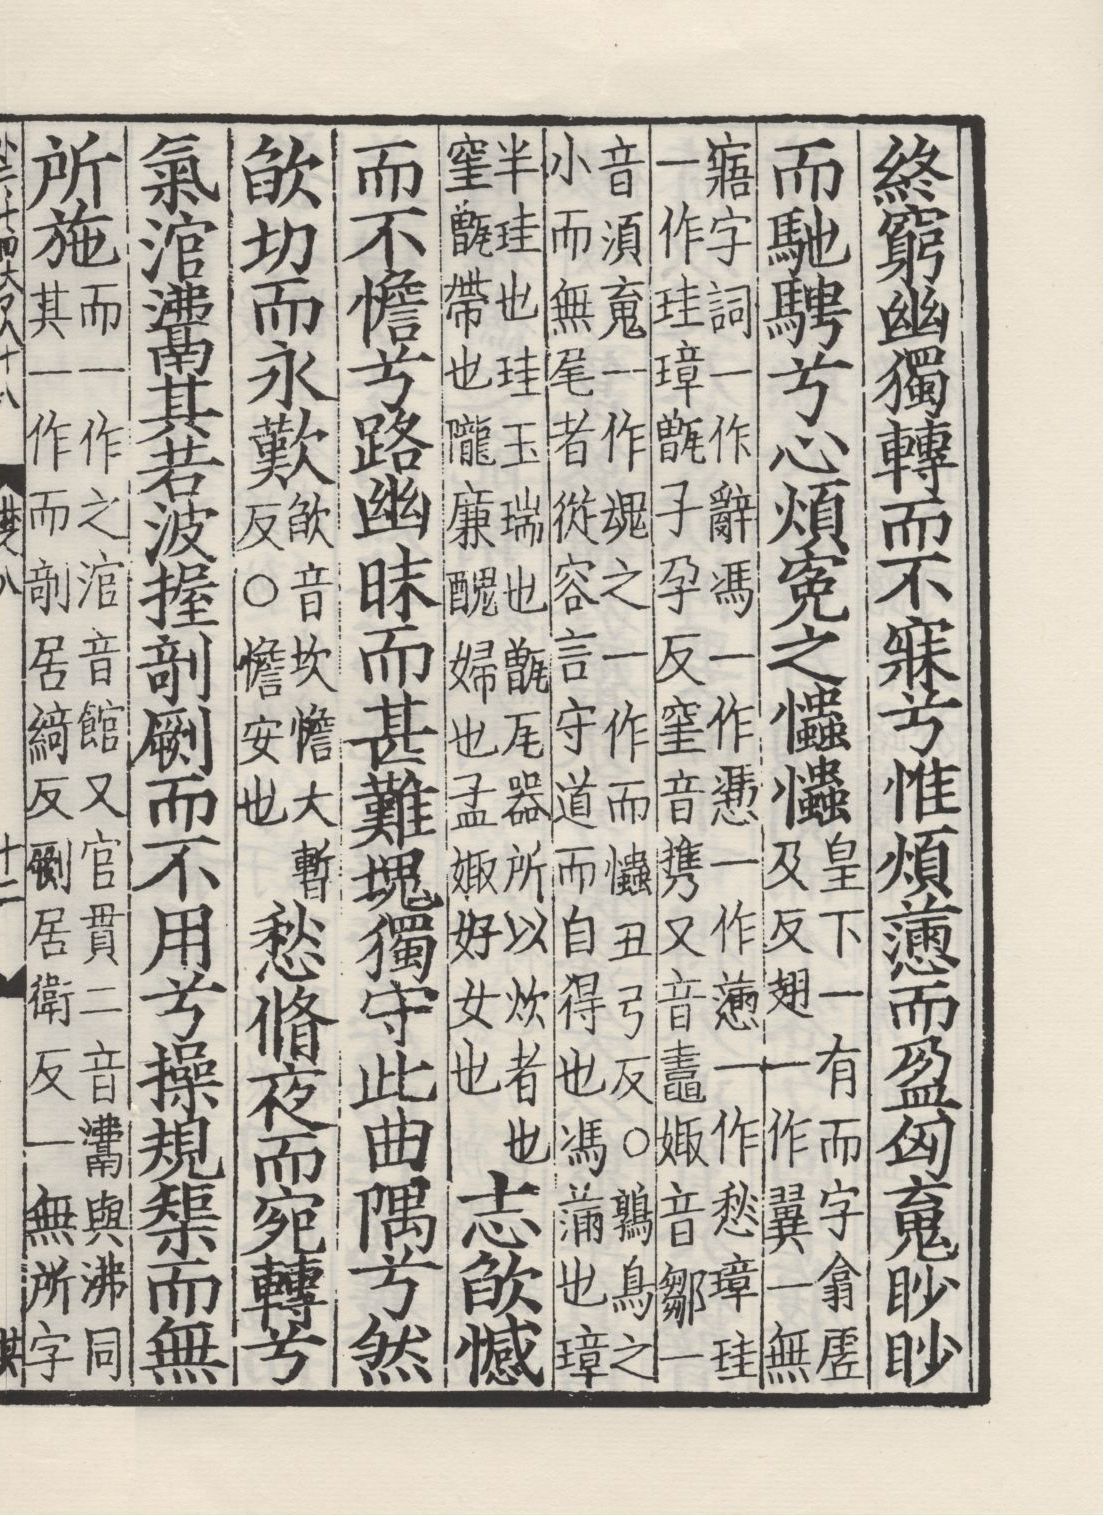 終窮幽獨轉而不寐兮惟煩懣而盈匈䰟眇眇
而馳騁兮心煩寃之忡忡皇下一有而字翕虛
及反翅一作翼一無
寤字詞一作辭馮一作懣一作懣一作愁璋珪
一作珪璋甑子孕反窐音携又音畫娵音鄒一
音須䰟一作魂之一作而忡丑弓反○鶉鳥之
小而無尾者從容言守道而自得也馮蒲也璋
半珪也珪玉瑞也甑瓦器所以炊者也
窐甑帶也隴廉醜婦也孟娵好女也
志欿憾
而不憺兮路幽昧而甚難塊獨守此曲隅兮然
欿切而永歎欿音坎憺大暫
反○憺安也
愁脩夜而宛轉兮
氣涫𩰾其若波握剞劂而不用兮操規榘而無
所施而一作之涫音館又官貫二音𩰾與沸同
其一作而剞居綺反劂居衛反一無所字